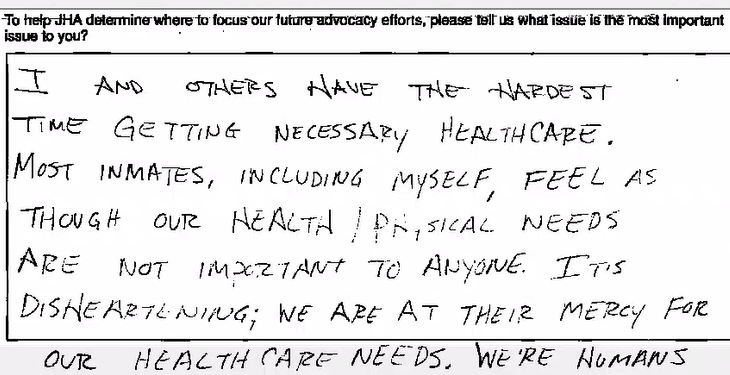 To help JHA determine where to focus our future advocacy efforts, please tell us what issue is the most important
issue to you?
I AND OTHERS HAVE THE HARDEST
TIME GETTING NECESSARY HEALTHCARE.
MOST INMATES, INCLUDING MYSELF, FEEL AS
THOUGH OUR HEALTH / PHYSICAL NEEDS
ARE NOT IMPORTANT TO ANYONE. IT'S
DISHEARTENING; WE ARE AT THEIR MERCY FOR
OUR HEALTH CARE NEEDS. WE'RE HUMANS